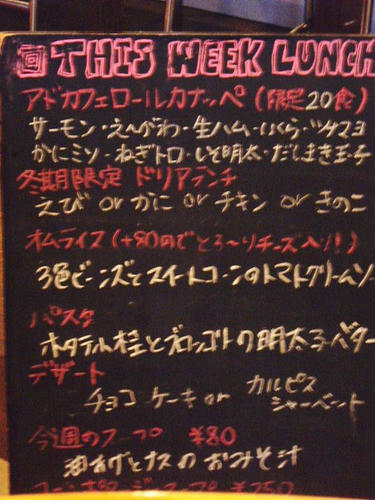 回 THIS WEEK LUNCH
アドカフェロールカナッペ (限定20食)
サーモン・えんがわ・生ハム・いくら・ツナマヨ
かにミソ・ねぎトロ・しそ明太・だしまき玉子
冬期限定 ドリアランチ
えび or かに or チキン or きのこ
オムライス (+80円でとろ〜りチーズ入り!)
3色ビーンズとスイートコーンのトマトクリームソ
パスタ
ホタテ貝柱とブロッコリーの明太子バター
デザート
チョコケーキ or カルピスシャーベット
今週のスープ ¥80
油あげとナスのおみそ汁
¥250